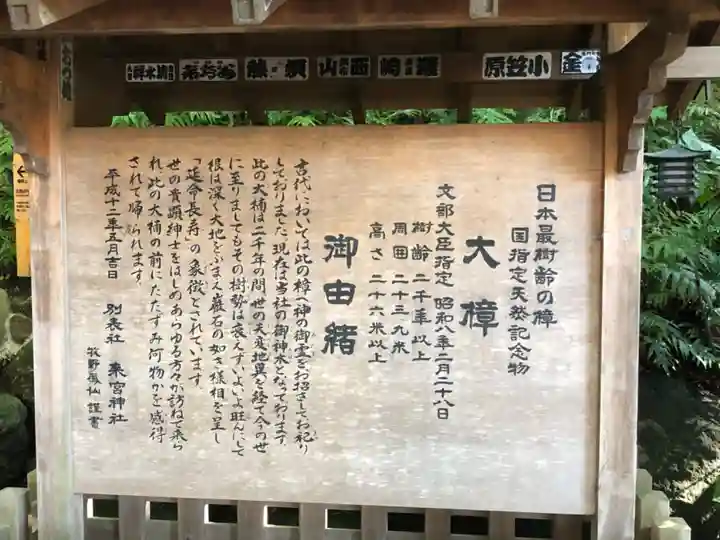 小笠原
羅崎
西山
須熊
日本最樹齢の樟
国指定天然記念物
大樟
文部大臣指定 昭和八年二月二十八日
樹齢 二千年以上
周囲 二十三、九米
高さ 二十六米以上
御由緒
古代においては此の樟へ神の御霊をお招きしてお祀り
しておりました 現在は当社の御神木となっております
此の大楠は二千年の間 世の天変地異を経て今の世
に至りましてもその樹勢は衰えずいよいよ旺んにして
根は深く大地をふまえ巌石の如き様相を呈し
「延命長寿」の象徴とされています。
世の貴顕紳士をはじめあらゆる方々が訪ねて来ら
れ、此の大楠の前にたたずみ何物かを感得
されて帰られます。
平成十二年五月吉日
別表社 来宮神社
牧野 謹書